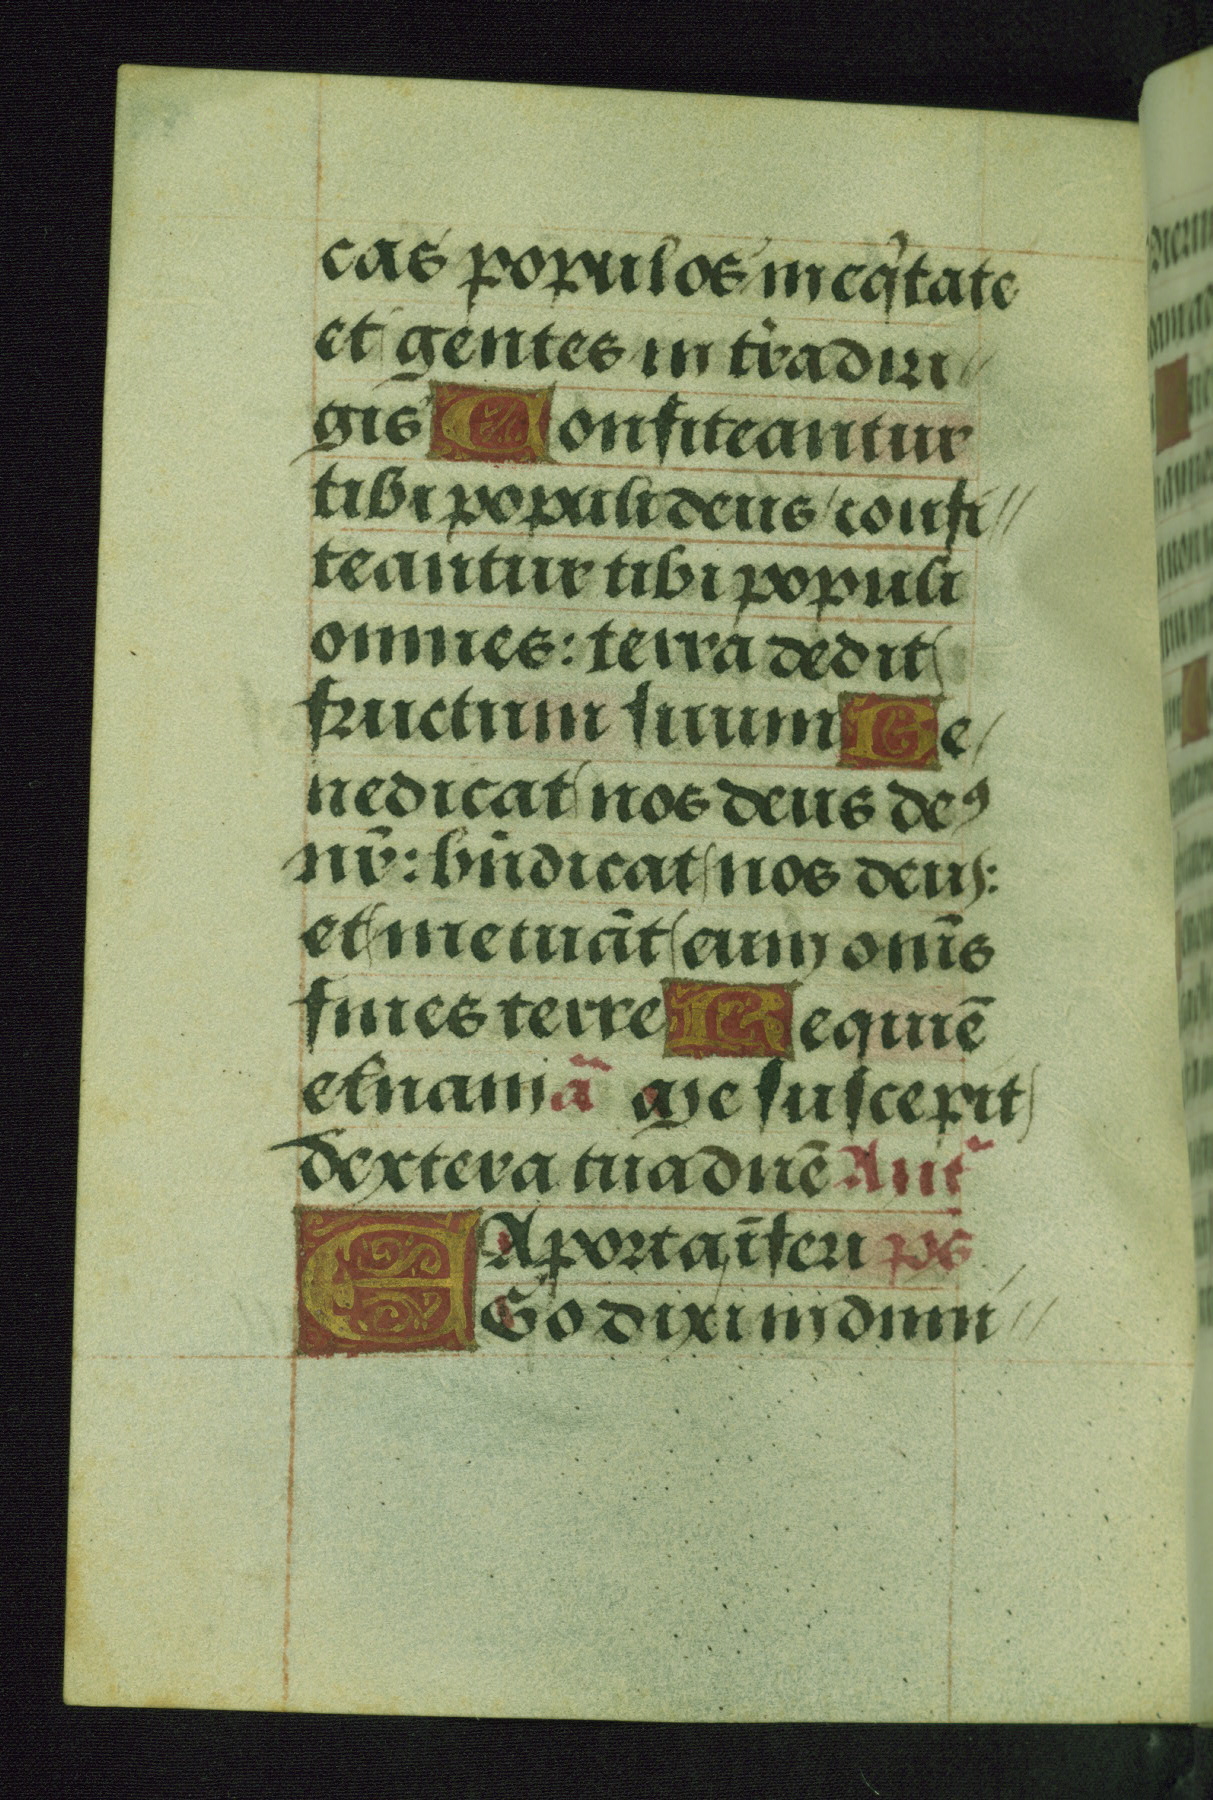 cas populos in eq̄tate
et gentes in t̄ra diri
gis Confiteantur
tibi populi deus confi
teantur tibi populi
omnes: terra dedit
fructum suum Be
nedicat nos deus de⁹
nr̄: bn̄dicat nos deus:
et metuāt eum om̄s
fines terre Requiē
et̄nam ā Me suscepit
dextera tua dn̄e Ant̃
A porta īferi ps̄
EGo dixi in dimi